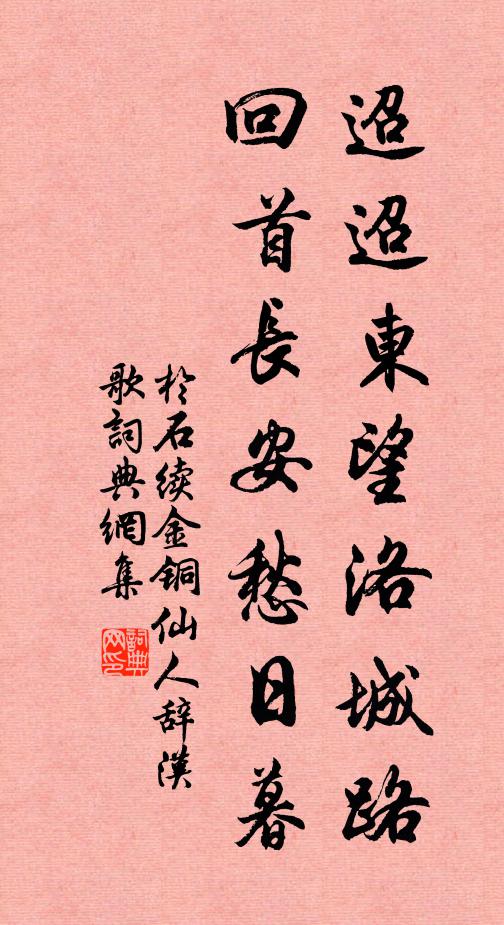 迢迢東望洛城路
回首長安愁日暮
於石续金铜仙人辞漢
歌詞典網集
詞典
网印